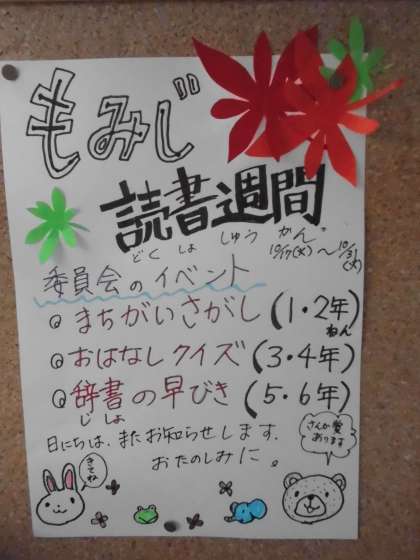 もみじ
読書週間
どくしょしゅうかん
10/17(火)～10/31(火)
委員会のイベント
◎まちがいさがし(1・2年)
ねん
◎おはなしクイズ(3・4年)
◎辞書の早びき(5・6年)
じしょ
日にちは、またお知らせします。
おたのしみに。
きてね
さんか賞
あります